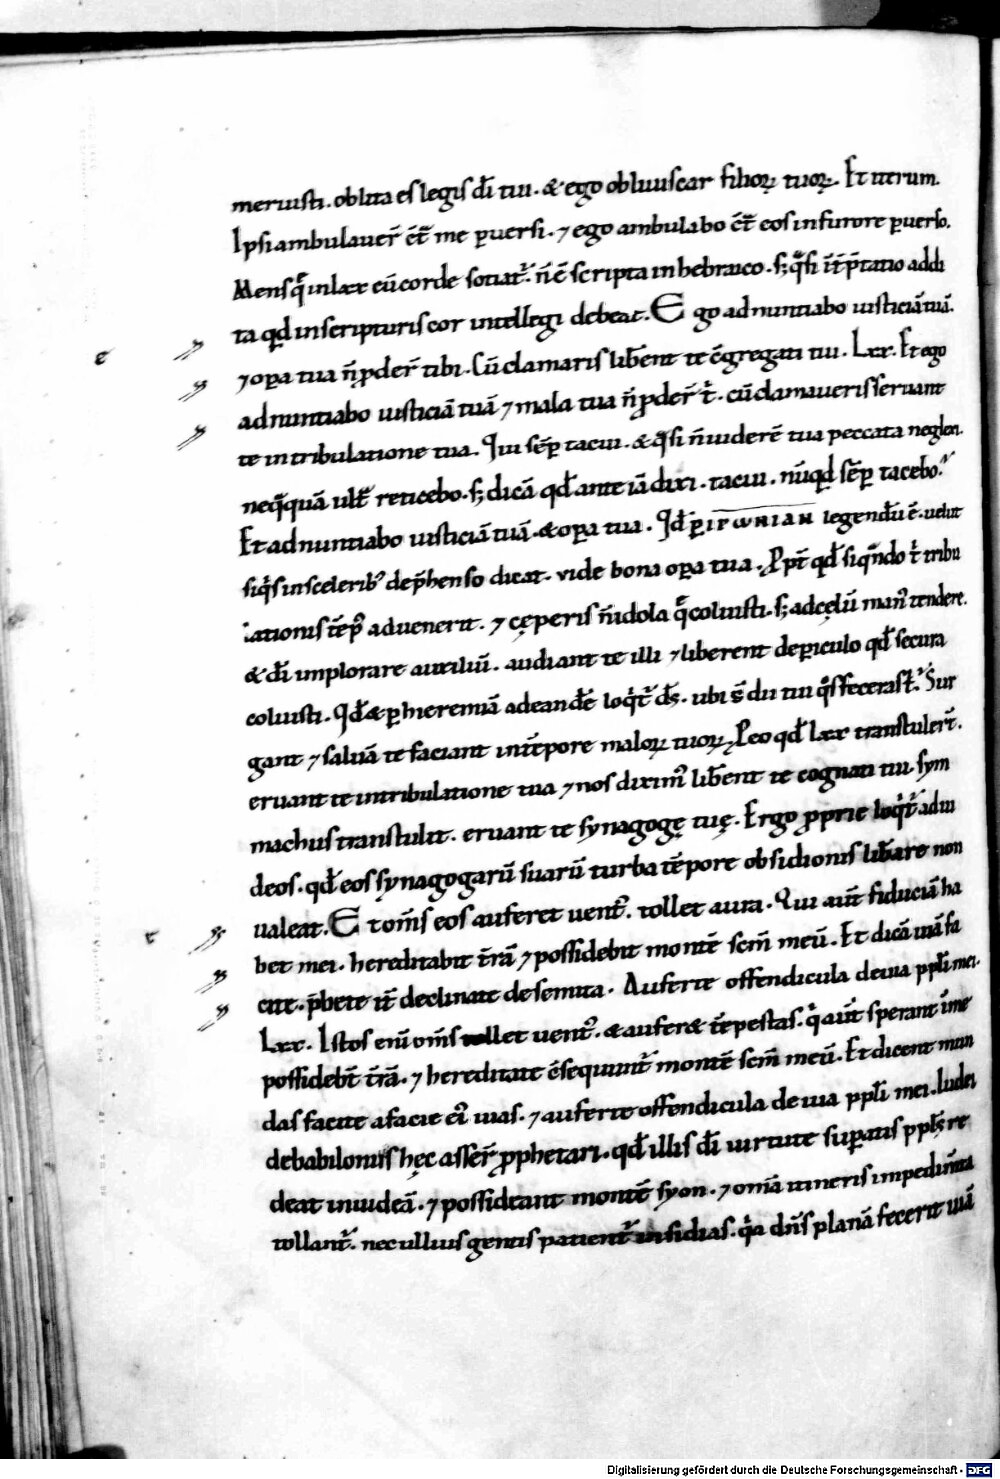 meruisti. oblita es legis dī tui. & ego obliuiscar filioꝝ tuoꝝ. Et iterum.
Ipsi ambulauer̄ c̄t̄ me ꝑuersi. ⁊ ego ambulabo c̄t̄ eos in furore ꝑuerso.
Mens q̄ in lxx cū corde sotiat᷑. n̄ ē scripta in hebraico. sꝫ q̄si int̄p̄tatio addi
ta qd̄ in scripturis cor intellegi debeat. Ego adnuntiabo iusticiā tuā.
⁊ oꝑa tua n̄ ꝓder̄ tibi. Cū clamaris lib̄ent te c̄gregati tui. Lxx. Et ego
adnuntiabo iusticiā tuā ⁊ mala tua n̄ ꝓder̄ t'. cū clamaueris seruant
te in tribulatione tua. Qui sēꝑ tacui. & q̄si n̄ uiderē tua peccata neglen.
neq̄quā ult̄ reticebo. sꝫ dicā qd̄ ante iā dixi. tacui. nūqd̄ sēꝑ tacebo.
Et adnuntiabo iusticiā tuā. & oꝑa tua. Qd̄ ꝑ ιρωνιαν legendū ē. uelut
siq̄s in sceleribꝰ dep̄henso dicat. vide bona oꝑa tua. Ppt̄ qd̄ siq̄ndo t' tribu
lationis tēpꝰ aduenerit. ⁊ cęperis n̄ idola q̄ coluisti. sꝫ ad cęlū manꝰ tendere.
& dī implorare auxiliū. audiant te illi ⁊ liberent de ꝑiculo qd̄ secura
coluisti. Qd̄ & ꝑ hieremiā ad eand̄ē loq̄t᷑ d̄s. ubi s̄ dii tui q̄s fecerast'. Sur
gant ⁊ saluā te faciant in tēpore maloꝝ tuoꝝ. P eo qd̄ lxx transtuler̄.
eruant te in tribulatione tua ⁊ nos diximꝰ lib̄ent te cognati tui. sym
machus transtulit. eruant te synagogę tuę. Ergo ꝓprie loq̄t᷑ ad iu
deos. qd̄ eos synagogarū suarū turba tēpore obsidionis lib̄are non
ualeat. Et om̄s eos auferet uentꝰ. tollet aura. Qui aut̄ fiduciā ha
bet mei. hereditabit t̄rā ⁊ possidebit montē sc̄m meū. Et dicā uiā fa
cite. p̄bete it̄ declinate de semita. Auferte offendicula de uia pp̄li mei.
Lxx. Istos enī om̄s tollet uentꝰ. & aufer& tēpestas. q' aut̄ sperant ī me
possideb̄t t̄rā. ⁊ hereditate c̄sequunt᷑ montē sc̄m meū. Et dicent mun
das facite a facie eiꝰ uias. ⁊ auferte offendicula de uia pp̄li mei. Iudei
de babiloniis hęc asser̄ ꝓphetari. qd̄ illis dī uirtute suꝑatis pp̄ls re
deat in iudeā. ⁊ possideant montē syon. ⁊ om̄ia itineris impedim̄ta
tollant᷑. nec ullius gentis patient᷑ insidias. q'a dn̄s planā fecerit uiā
e
e